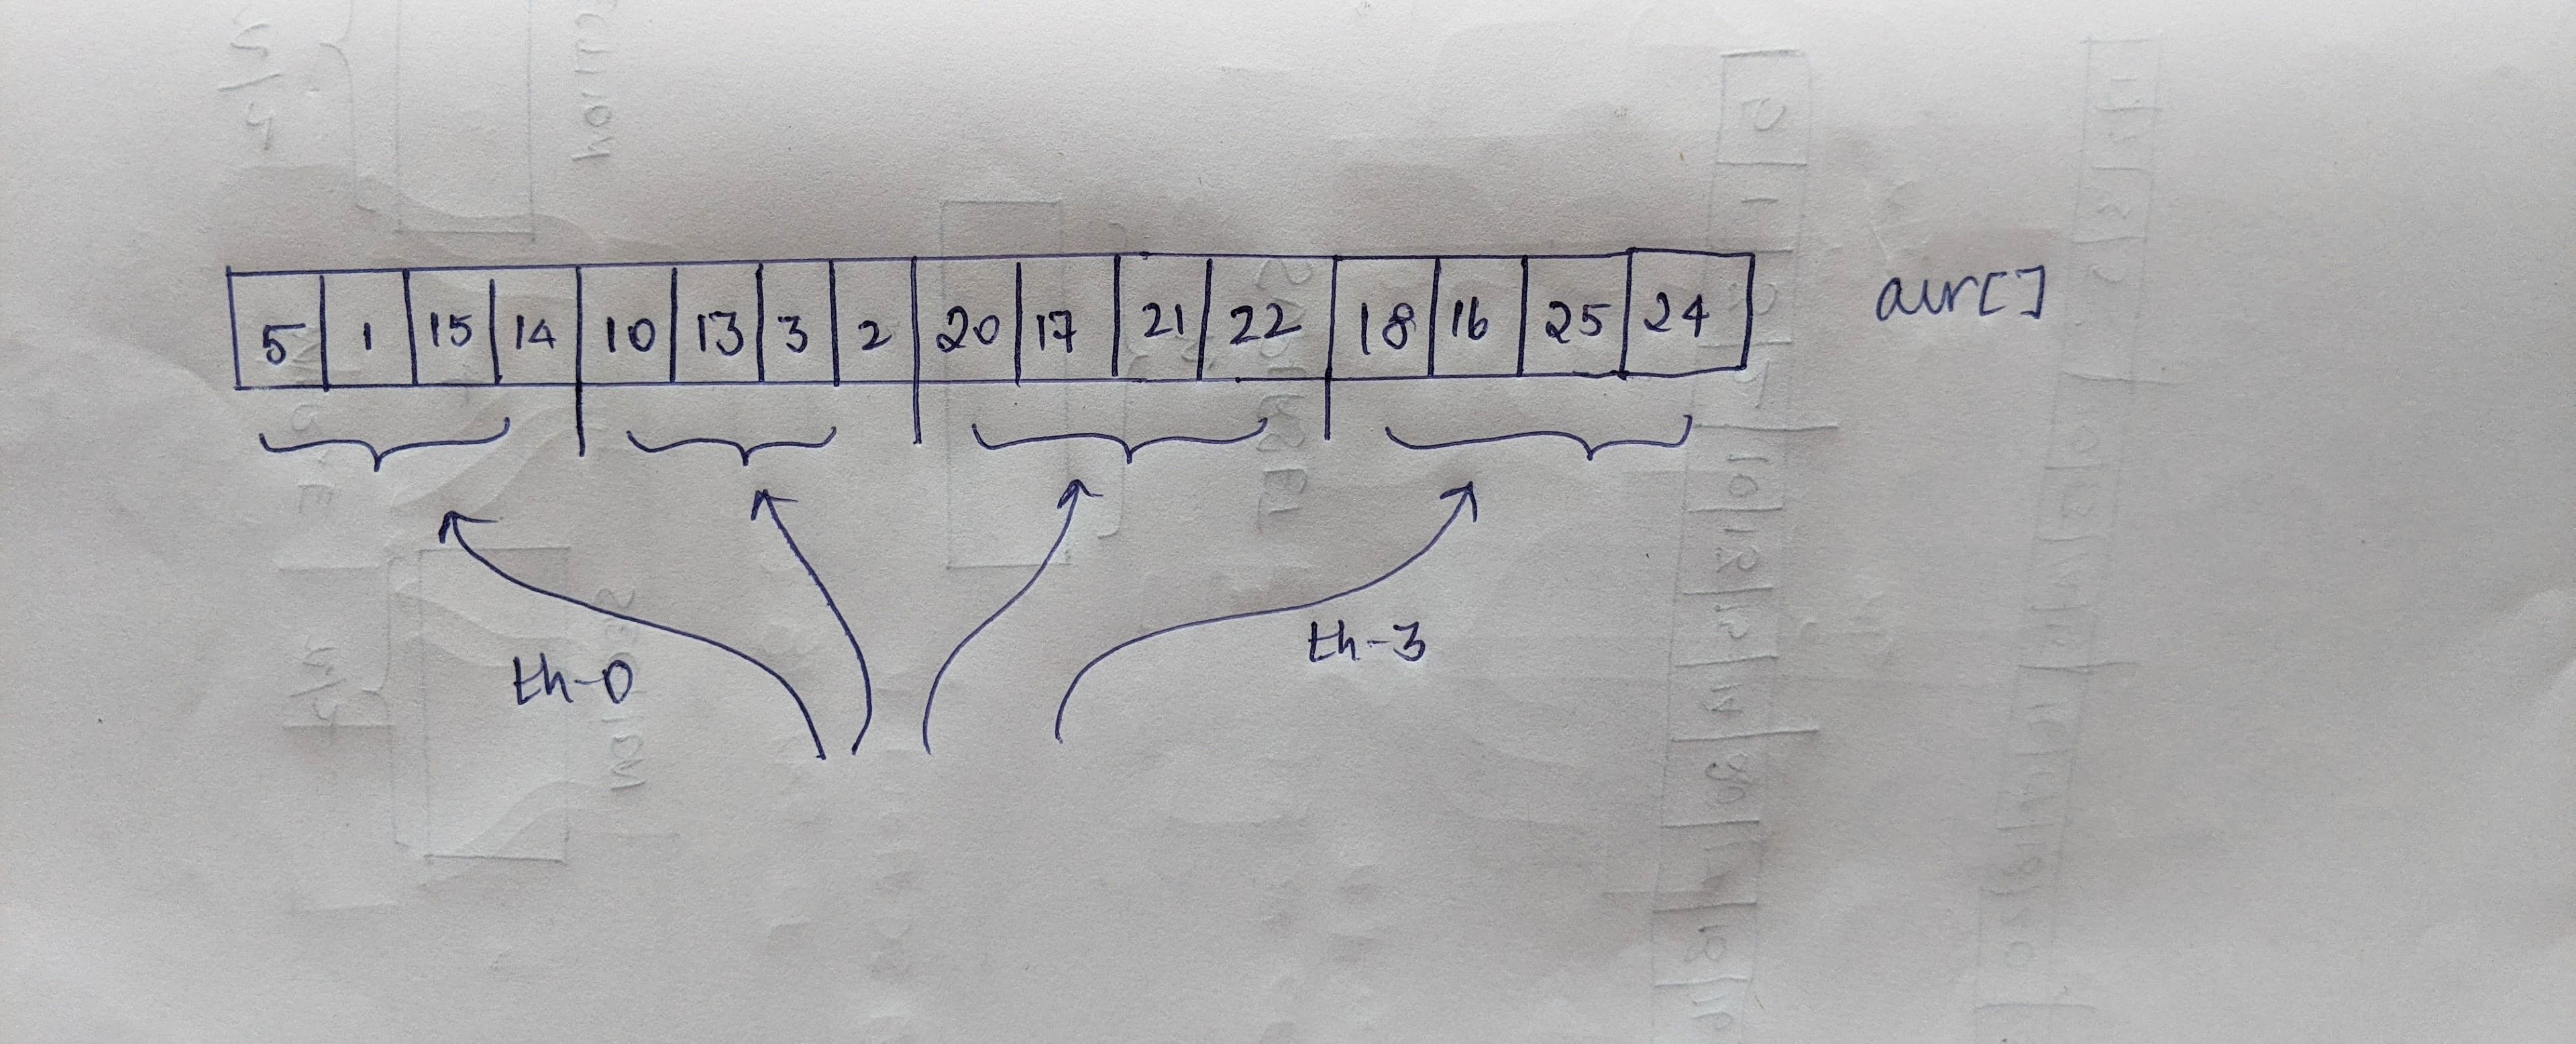 5 1 15 14 10 13 3 2 20 17 21 22 18 16 25 24 arr[]
th-0 th-3